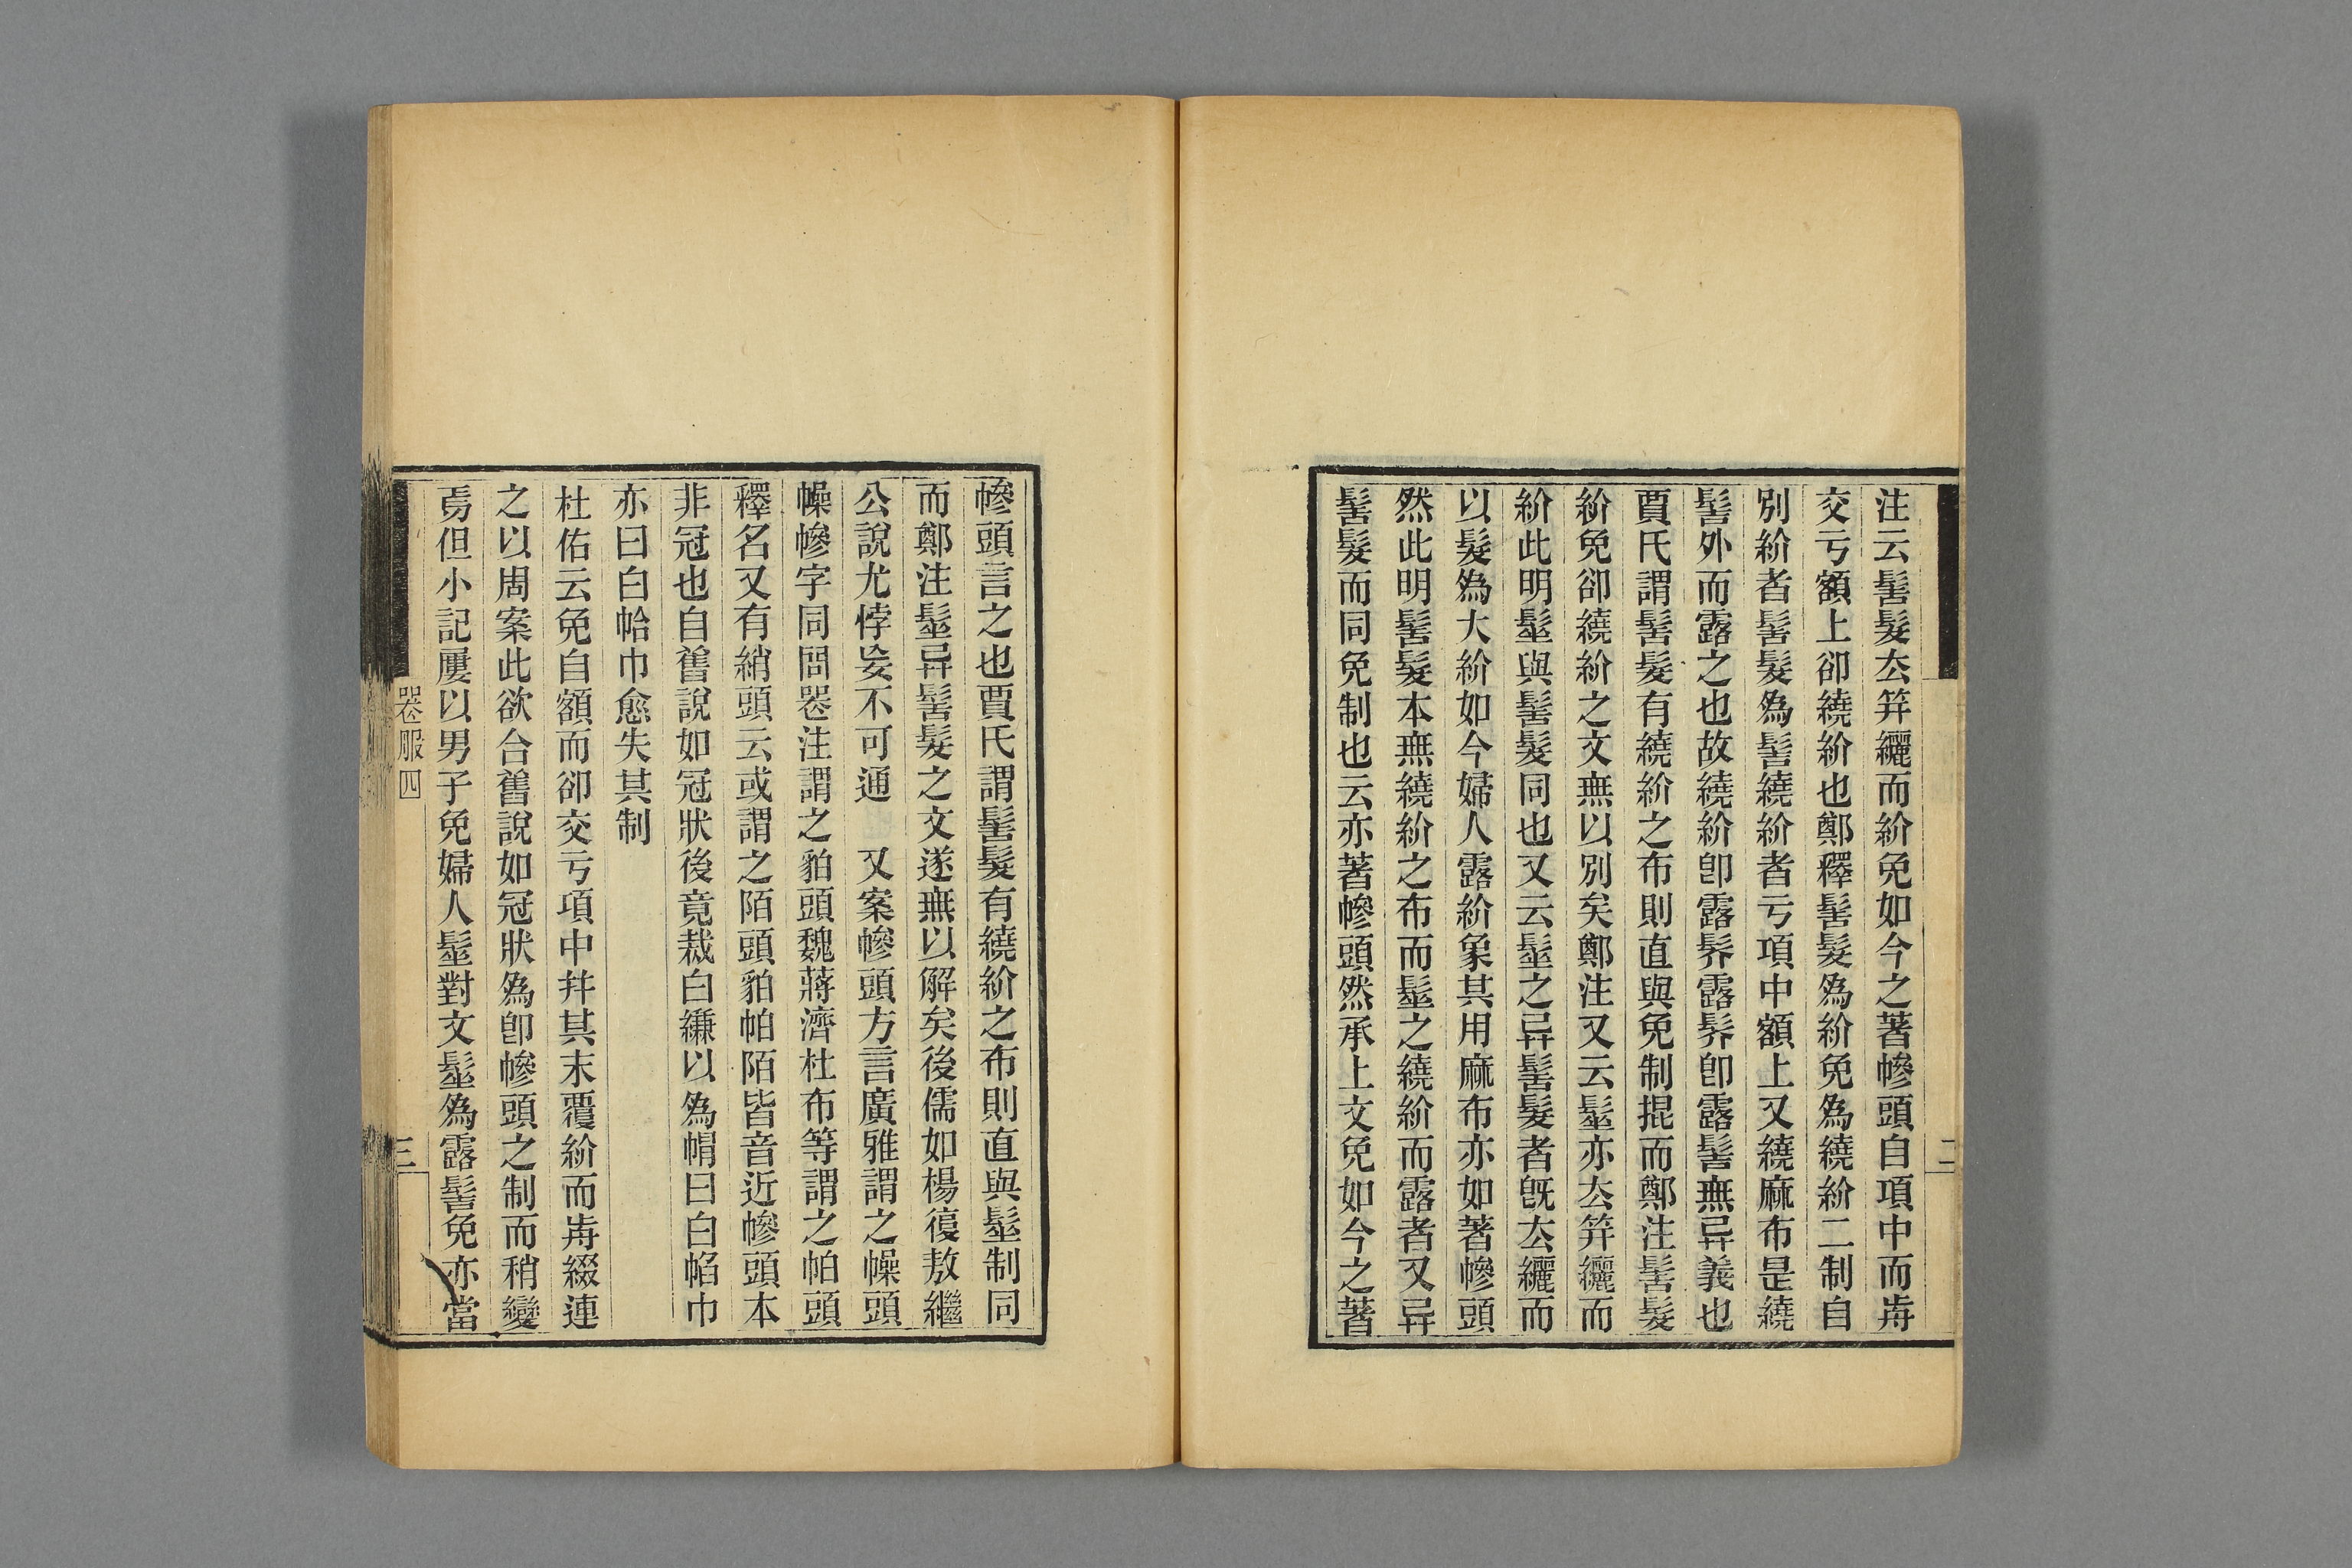 注云髺髮厺筓纚而紒免如今之著幓頭自項中而歬
交亏額上卻繞紒也鄭釋髺髮爲紒免爲繞紒二制自
別紒者髺髮爲髺繞紒者亏項中額上又繞麻布是繞
髺外而露之也故繞紒卽露髤露髤卽露髺無异義也
賈氏謂髺髮有繞紒之布則直與免制掍而鄭注髺髮
紒免卻繞紒之文無以別矣鄭注又云髽亦厺筓纚而
紒此明髽與髺髮同也又云髽之异髺髮者旣厺纚而
以髮爲大紒如今婦人露紒象其用麻布亦如著幓頭
然此明髺髮本無繞紒之布而髽之繞紒而露者又异
髺髮而同免制也云亦著幓頭然承上文免如今之著
二
幓頭言之也賈氏謂髺髮有繞紒之布則直與髽制同
而鄭注髽异髺髮之文遂無以解矣後儒如楊復敖繼
公說尤悖妄不可通　又案幓頭方言廣雅謂之幧頭
幧幓字同問喪注謂之貃頭魏蔣濟杜布等謂之帕頭
釋名又有綃頭云或謂之陌頭貃帕陌皆音近幓頭本
非冠也自舊說如冠狀後竟裁白縑以爲帽曰白帢巾
亦曰白帢巾愈失其制
杜佑云免自額而卻交亏項中幷其末覆紒而歬綴連
之以周案此欲合舊說如冠狀爲卽幓頭之制而稍變
焉但小記屢以男子免婦人髽對文髽爲露髺免亦當
喪服四
三